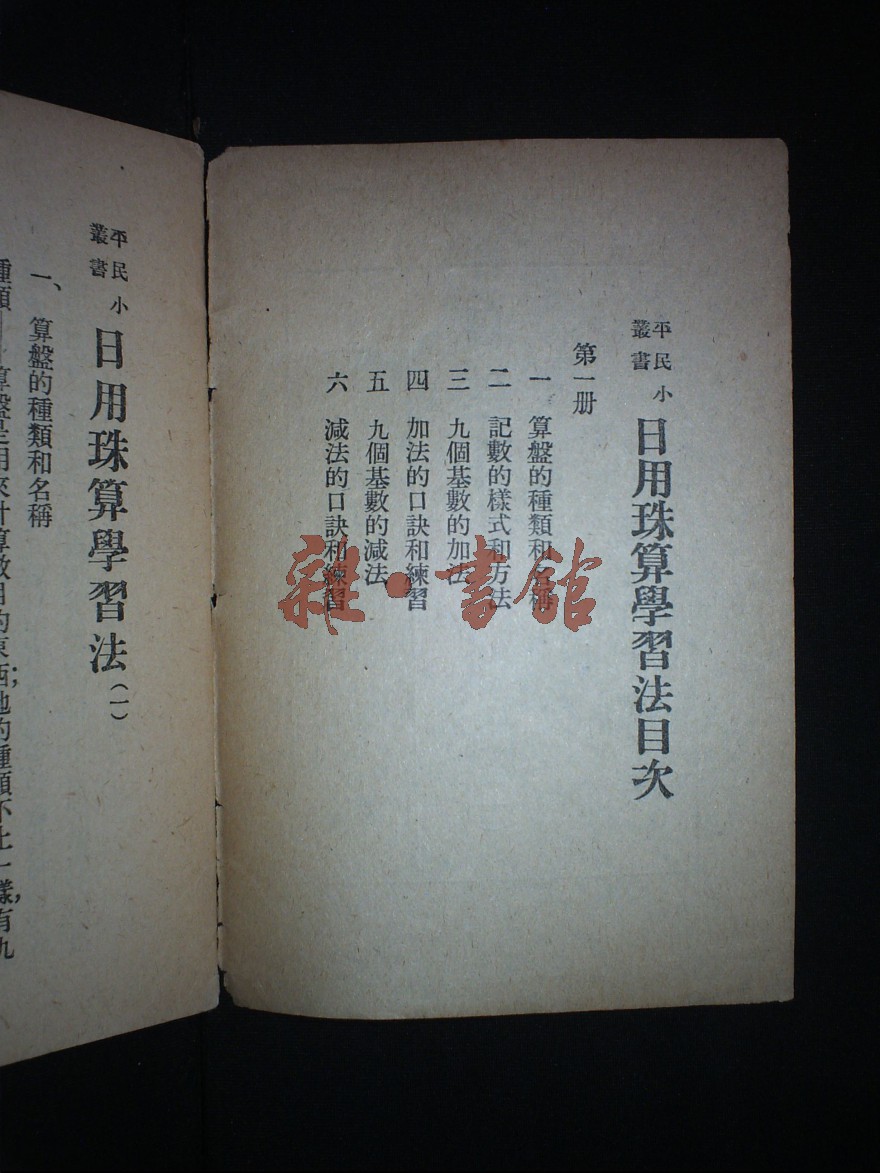 平民小
叢書
日用珠算學習法目次
第一册
一 算盤的種類和名稱
二 記數的樣式和方法
三 九個基數的加法
四 加法的口訣和練習
五 九個基數的減法
六 減法的口訣和練習
雜·書館
平民小
叢書
日用珠算學習法(一)
一、算盤的種類和名稱
種類——算盤是用來計算數目的東西;牠的種類不止一樣,有九